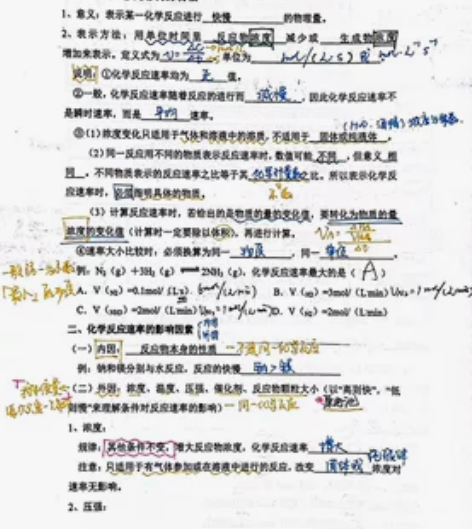 1、意义：表示某一化学反应进行 快慢 的物理量。
2、表示方法：用单位时间里 反应物浓度 减少或 生成物浓度
增加来表示。定义式为 单位为 mol/(L·s)
说明：①化学反应速率均为 正 值。
②一般，化学反应速率随着反应的进行而 减慢 ，因此化学反应速率不
是瞬时速率，而是 平均 速率。
③(1)浓度变化只适用于气体和溶液中的溶质，不适用于 固体或纯液体
(2)同一反应用不同的物质表示反应速率时，数值可能 不同 ，但意义 相
同 。不同物质表示的反应速率之比等于其 化学计量数 之比。所以表示化学反
应速率时，必须指明具体的物质。
(3)计算反应速率时，若给出的是物质的量的变化值，要转化为物质的量
浓度的变化值（计算时一定要除以体积），再进行计算。
④速率大小比较时，必须换算为同一 物质 ，同一 单位
例：N₂(g)+3H₂(g)⇌2NH₃(g)，化学反应速率最大的是（A）
A、V(H2)=0.1mol/(L·s) 6mol/(L·min) B、V(N2)=3mol/(L·min)
C、V(NH3)=2mol/(L·min) 1mol/(L·min) D、V(H2)=2mol/(L·min)
二、化学反应速率的影响因素 内因 外因
(一)内因： 反应物本身的性质
例：钠和镁分别与水反应，反应的快慢 钠>镁
(二)外因：浓度、温度、压强、催化剂、反应物颗粒大小（以“高到快”，“低
到慢”来理解条件对反应速率的影响） 原电池
1、浓度：
规律：其他条件不变，增大反应物浓度，化学反应速率 增大
注意：只适用于有气体参加或在溶液中进行的反应。改变 固体或 纯液体 浓度对
速率无影响。
2、压强：